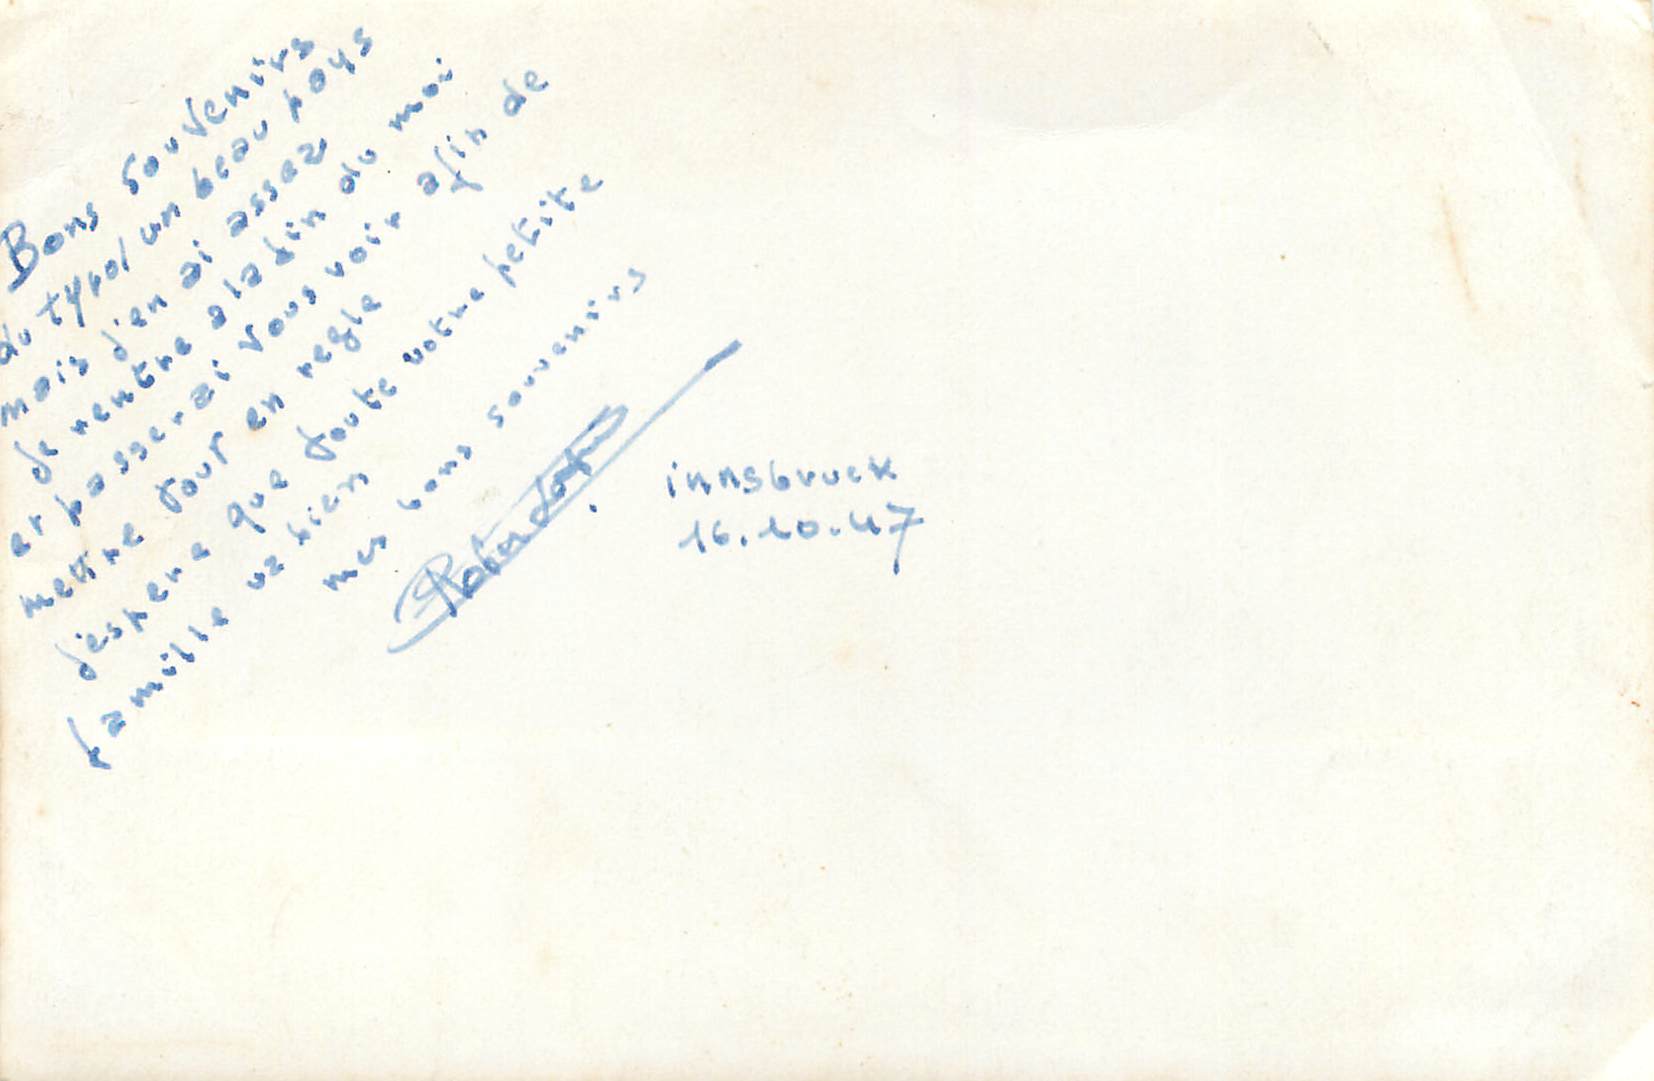 Bons souvenirs
du tyrol un beau pays
mais j'en ai assez
je rentre a la fin du moi
et passerai vous voir afin de
mettre tout en regle
j'espere que toute votre petite
famille va bien
mes bons souvenirs
innsbruck
16.10.47